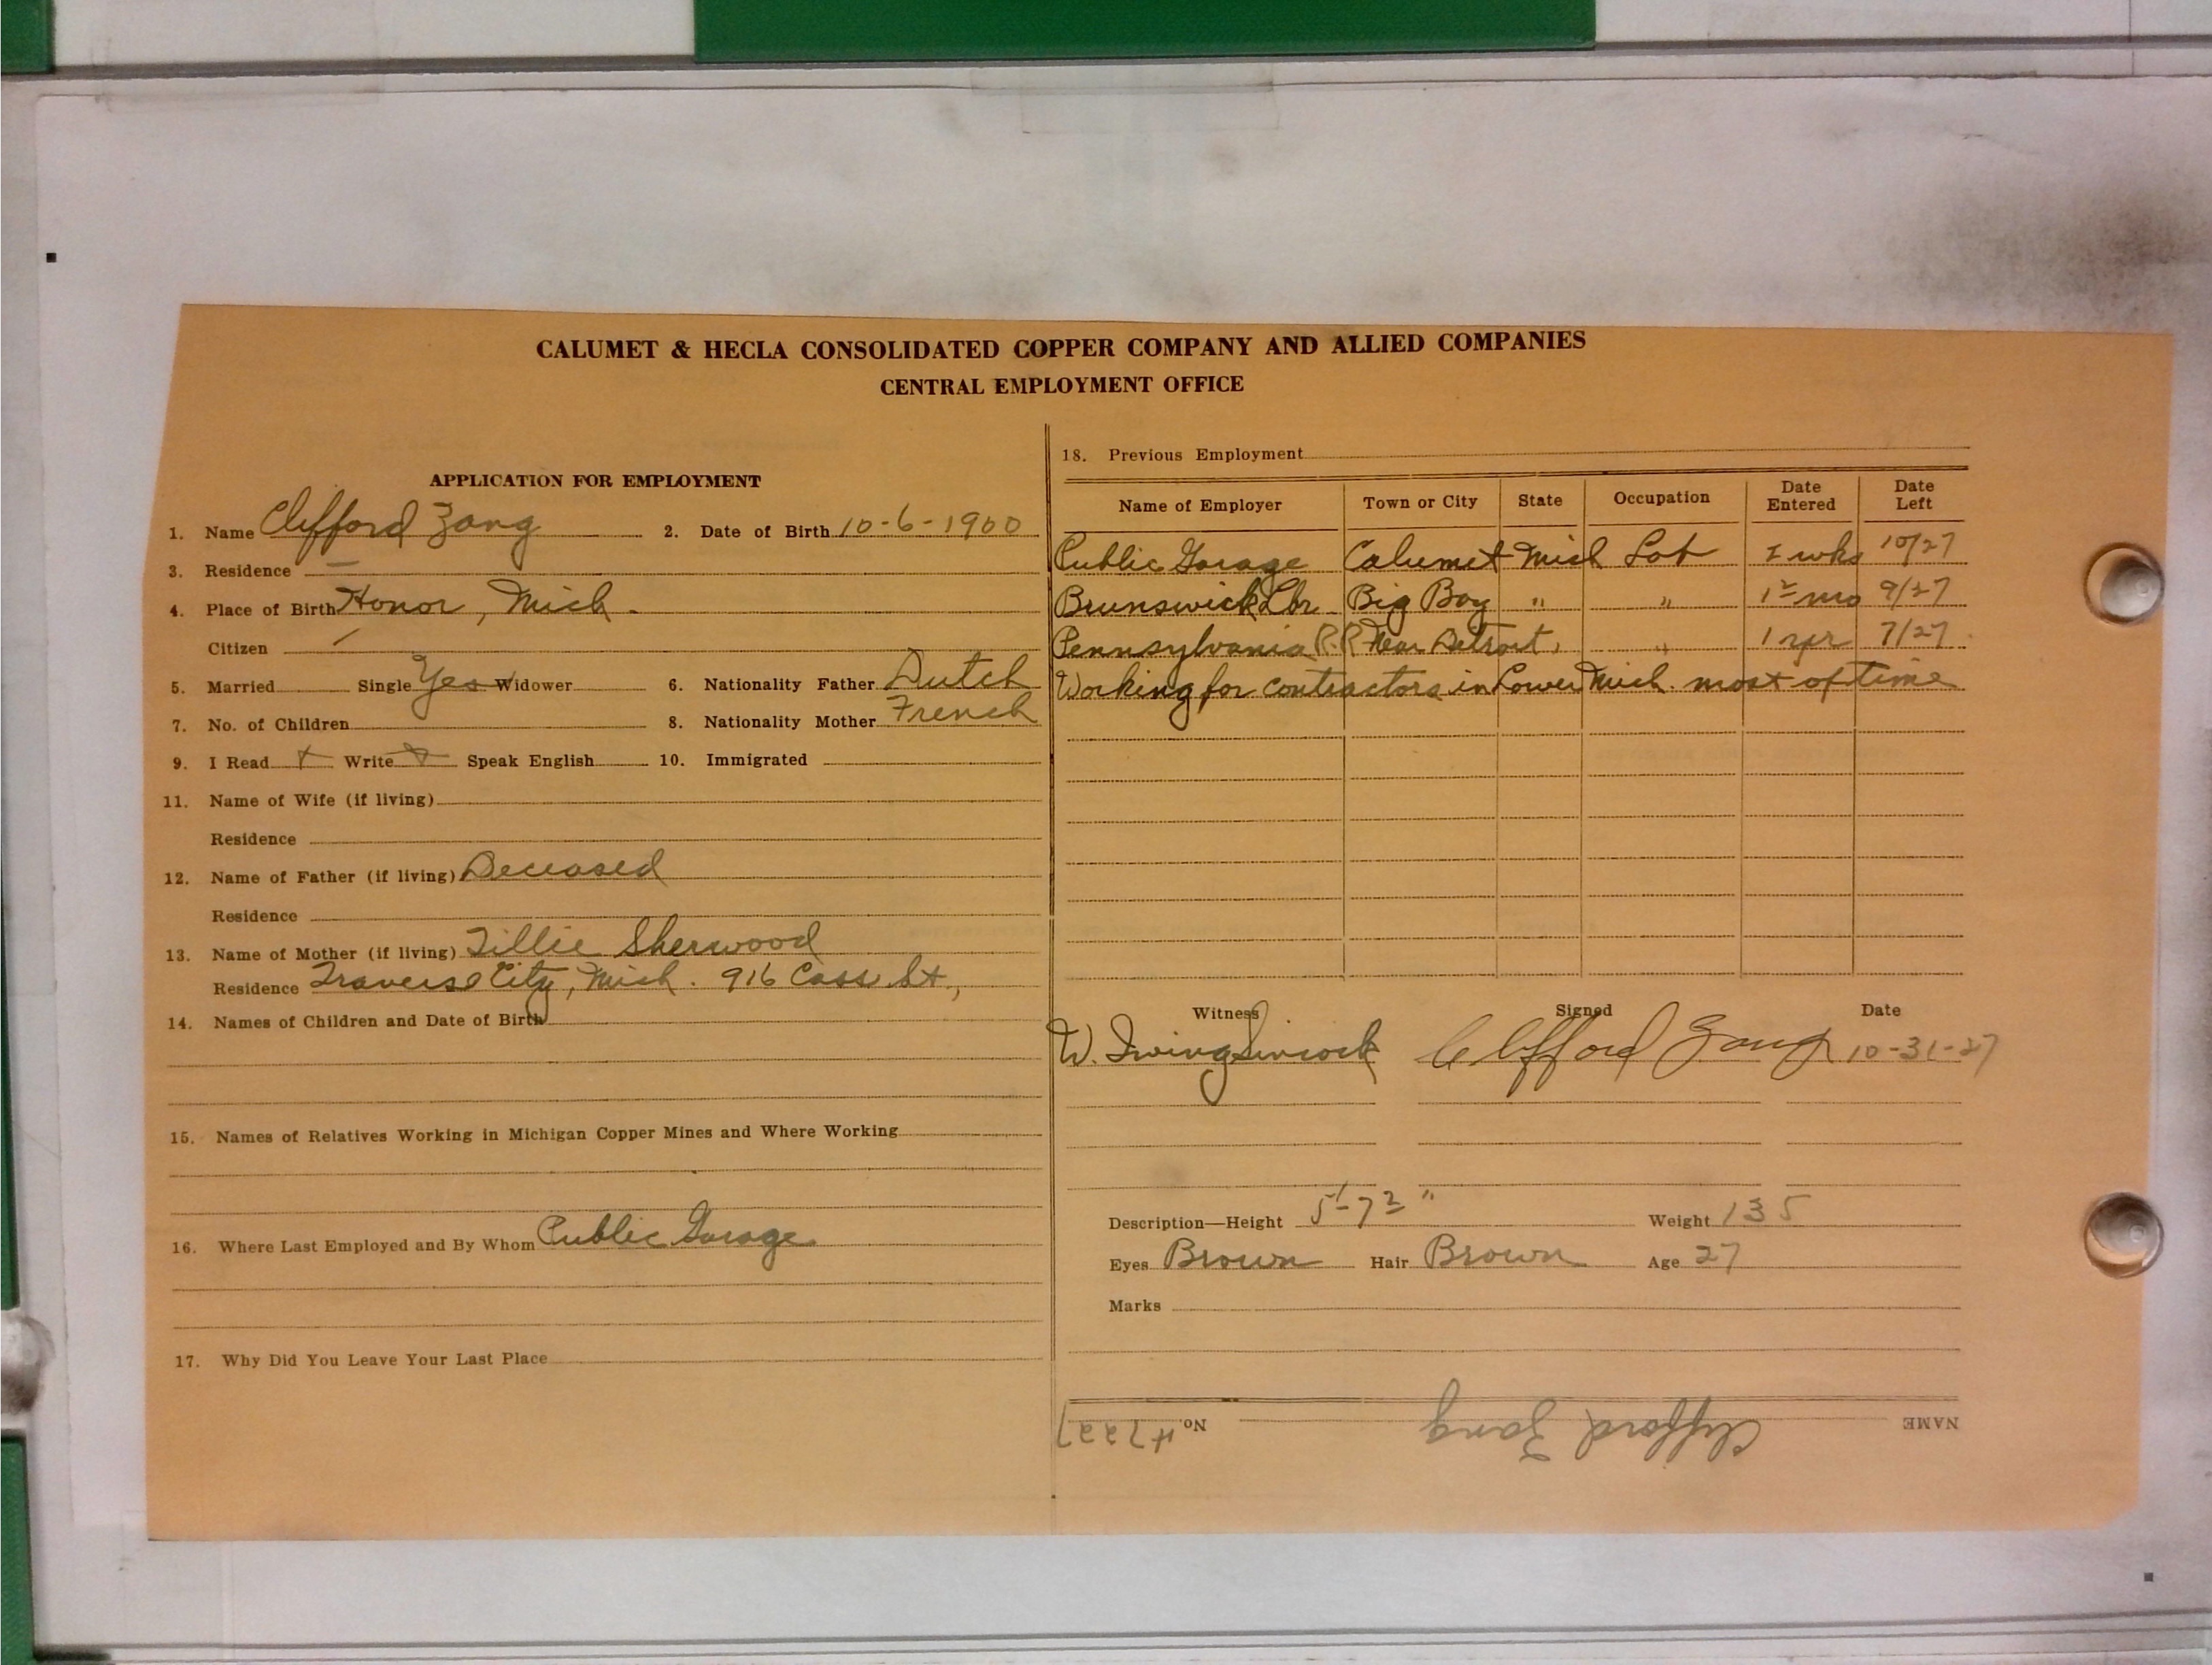 CALUMET & HECLA CONSOLIDATED COPPER COMPANY AND ALLIED COMPANIES
CENTRAL EMPLOYMENT OFFICE
APPLICATION FOR EMPLOYMENT
1. Name Clifford Zang 2. Date of Birth 10-6-1900
3. Residence —
4. Place of Birth Honor, Mich.
Citizen /
5. Married Single Yes Widower 6. Nationality Father Dutch
7. No. of Children 8. Nationality Mother French
9. I Read Write Speak English 10. Immigrated
11. Name of Wife (if living)
Residence
12. Name of Father (if living) Deceased
Residence
13. Name of Mother (if living) Tillie Sherwood
Residence Traverse City, Mich. 916 Cass St.,
14. Names of Children and Date of Birth
15. Names of Relatives Working in Michigan Copper Mines and Where Working
16. Where Last Employed and By Whom Public Garage
17. Why Did You Leave Your Last Place
18. Previous Employment
Name of Employer Town or City State Occupation Date Entered Date Left
Public Garage Calumet Mich Lab wks 10/27
Brunswick Lbr Big Bay " " mo 9/27
Pennsylvania R.R. Near Detroit, " 1 yr 7/27
Working for contractors in Lower Mich. most of time
Witness Signed Date
W. Irving Clifford Zang 10-31-27
Description—Height 5'-7 " Weight 135
Eyes Brown Hair Brown Age 27
Marks
NAME Clifford Zang No. #7227